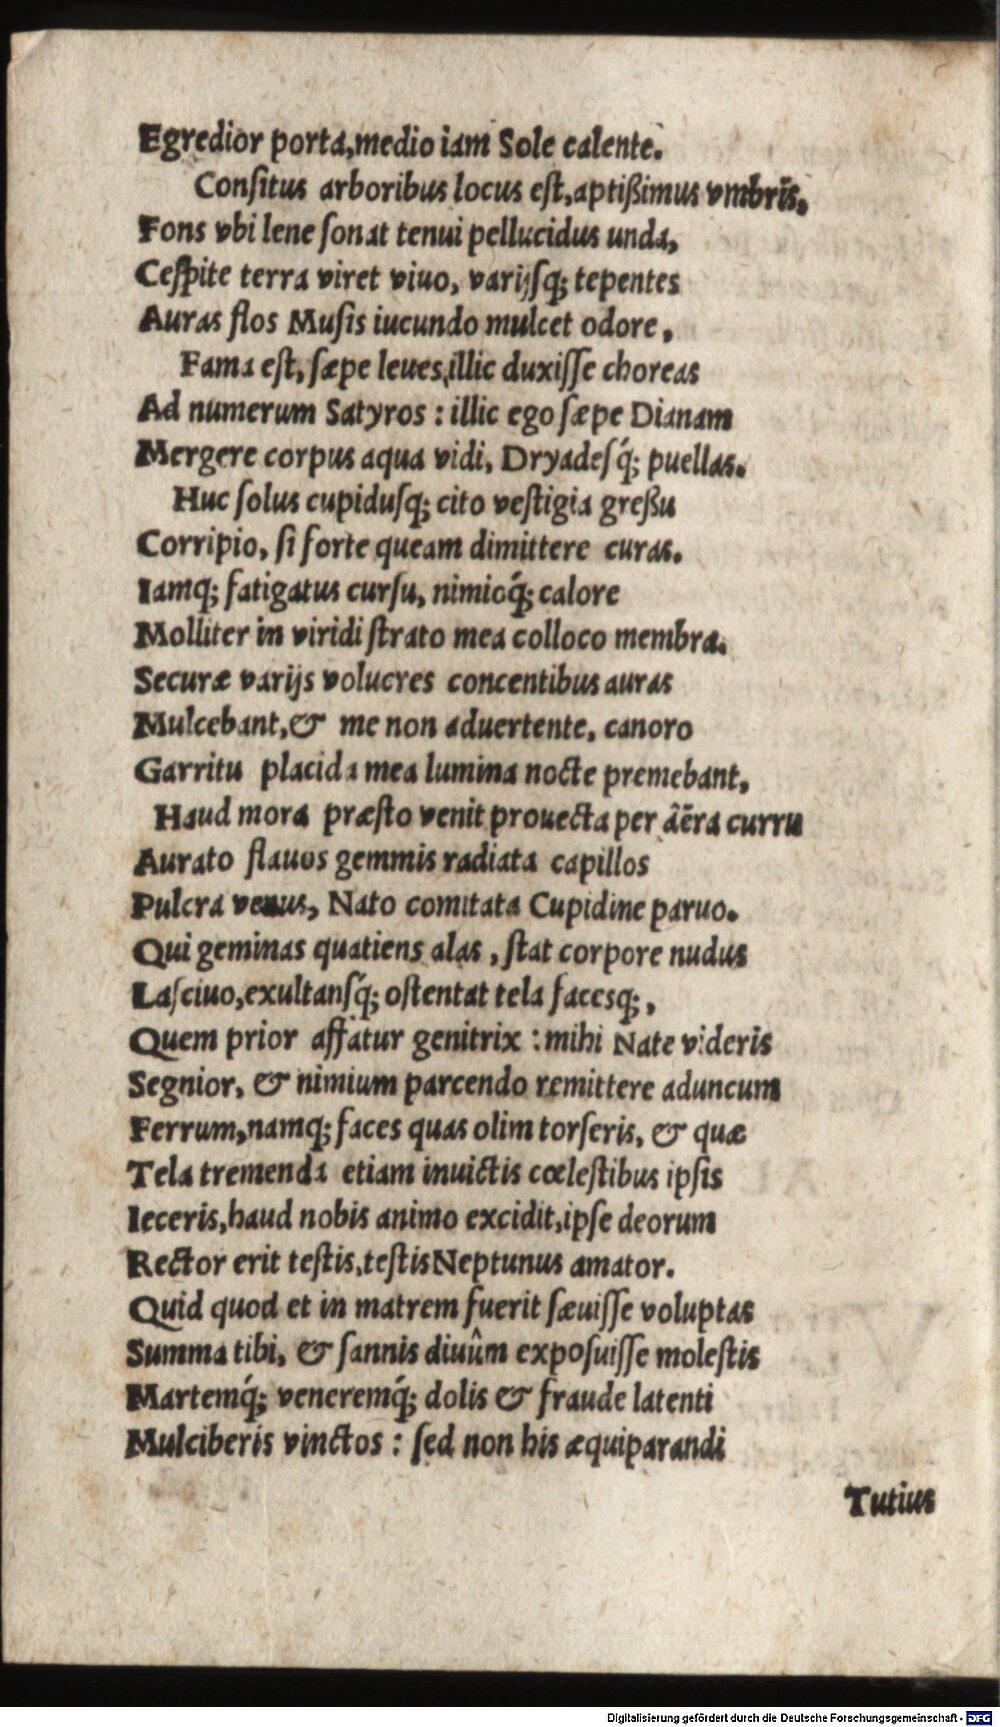 Egredior porta,medio iam Sole calente.
Conſitus arboribus locus eſt,aptißimus vmbris.
Fons vbi lene ſonat tenui pellucidus unda,
Ceſpite terra viret viuo, varijſq; tepentes
Auras flos Muſis iucundo mulcet odore,
Fama eſt, ſæpe leues,illic duxiſſe choreas
Ad numerum Satyros : illic ego ſæpe Dianam
Mergere corpus aqua vidi, Dryadeſq́; puellas.
Huc ſolus cupiduſq; cito veſtigia greßu
Corripio, ſi forte queam dimittere curas.
Iamq; fatigatus curſu, nimioq́; calore
Molliter in viridi ſtrato mea colloco membra.
Securæ varijs volucres concentibus auras
Mulcebant,& me non aduertente, canoro
Garritu placida mea lumina nocte premebant,
Haud mora præſto venit prouecta per âëra curru
Aurato flauos gemmis radiata capillos
Pulcra venus, Nato comitata Cupidine paruo.
Qui geminas quatiens alas, ſtat corpore nudus
Laſciuo,exultanſq́; oſtentat tela facesq;,
Quem prior affatur genitrix : mihi Nate videris
Segnior, & nimium parcendo remittere aduncum
Ferrum,namq; faces quas olim torſeris, & quæ
Tela tremenda etiam inuictis cœleſtibus ipſis
Ieceris,haud nobis animo excidit,ipſe deorum
Rector erit teſtis,teſtis Neptunus amator.
Quid quod et in matrem fuerit ſæuiſſe voluptas
Summa tibi, & ſannis diuûm expoſuiſſe moleſtis
Martemq́; veneremq́; dolis & fraude latenti
Mulciberis vinctos : ſed non his æquiparandi
Tutius
Digitalisierung gefördert durch die Deutsche Forschungsgemeinschaft - DFG